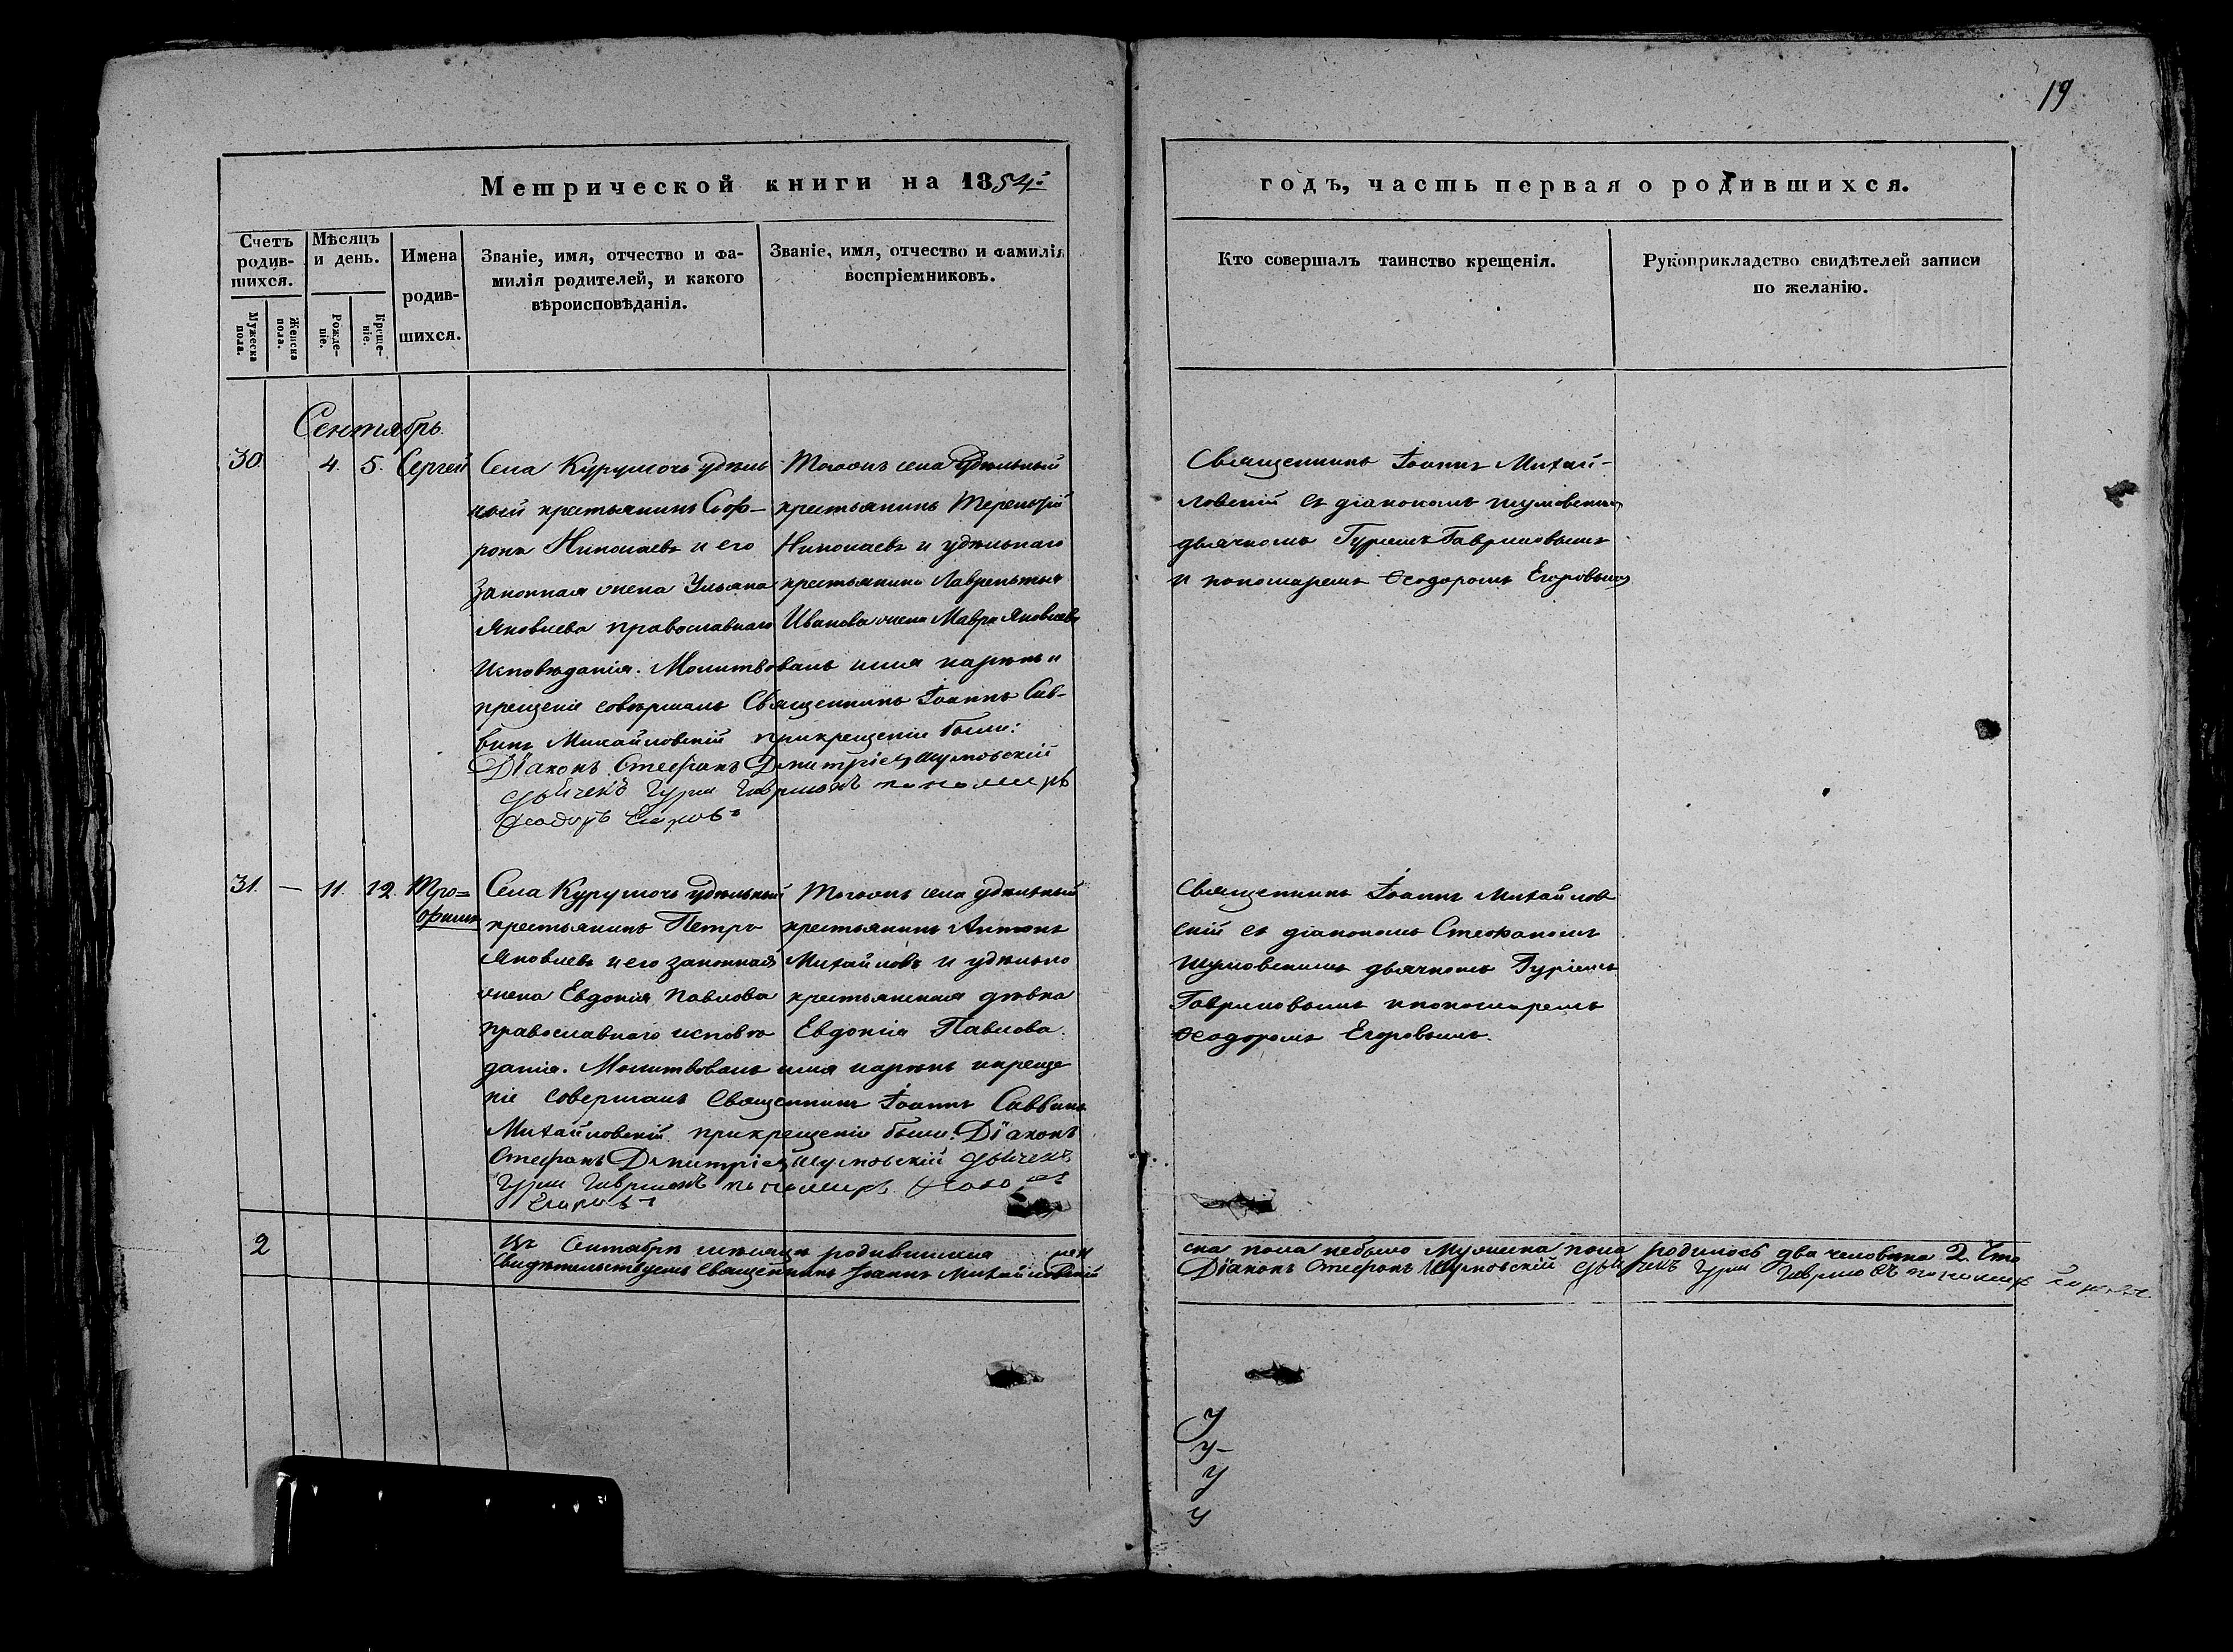 19
Метрической книги на 1854й
годъ, часть первая о родившихся.
Счетъ родив-шихся.
Мужеска пола.
Женска пола.
Мѣсяцъ и день.
Рожде-ніе.
Креще-ніе.
Имена родив-шихся.
Званіе, имя, отчество и фа-
милія родителей, и какого
вѣроисповѣданія.
Званіе, имя, отчество и фамилія
воспріемниковъ.
Кто совершалъ таинство крещенія.
Рукоприкладство свидѣтелей записи
по желанію.
Сентябрь.
30. 4. 5. Сергей
Села Курумочь удѣль
ной крестьянинъ Соф-
ронъ Николаевъ и его
законная жена Ульяна
Яковлева православнаго
Исповѣданія. Молитвовалъ имя нарекъ и
крещеніе совершалъ Священникъ Іоаннъ Сав-
винъ Михайловскій при крещеніи были:
Діаконъ Стефанъ Дмитріевъ Шумовскій
дьячекъ Гурій Гавриловъ пономарь
Феодоръ Егоровъ
Тогожъ села Удѣльный
крестьянинъ Терентій
Николаевъ и удѣльнаго
крестьянина Лаврентья
Иванова жена Мавра Яковлева
Священникъ Іоаннъ Михай-
ловскій съ діакономъ Шумовскимъ
дьячкомъ Гуріемъ Гавриловымъ
и пономаремъ Ѳеодоромъ Егоровымъ
31. — 11. 12. Тро=
фимъ
Села Курумочь удѣльный
крестьянинъ Петръ
Яковлевъ и его законная
жена Евдокія Павлова
православнаго исповѣ
данія. Молитвовалъ имя нарекъ и креще
ніе совершалъ Священникъ Іоаннъ Саввинъ
Михайловскій при крещеніи были: Діаконъ
Стефанъ Дмитріевъ Шумовскій дьячекъ
Гурій Гавриловъ пономарь Феодоръ
Егоровъ
Тогожъ села удѣльный
крестьянинъ Антонъ
Михайловъ и удѣльно
крестьянская дѣвка
Евдокія Павлова.
Священникъ Іоаннъ Михайлов
скій съ діакономъ Стефаномъ
Шумовскимъ дьячкомъ Гуріемъ
Гавриловымъ и пономаремъ
Ѳеодоромъ Егоровымъ.
2
Въ Сентябрѣ мѣсяцѣ родившихся жен
ска пола небыло Мужеска пола родилось два человѣка 2. Что
Свидѣтельствуемъ Священникъ Іоаннъ Михайловскій
Діаконъ Стефанъ Шумовскій дьячекъ Гурій Гавриловъ пономарь
У
у-
у
у